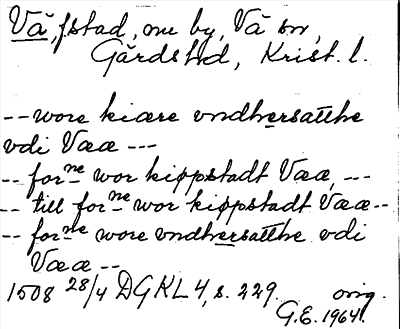 Vä, f.stad, nu by, Vä sn,
Gärds hd, Krist. l.
-- wore kiære vndhersatthe
vdi Væ ---
-- forne wor kiøpstadt Væ, ---
-- till forne wor kiøpstadt Væ --
-- forne wore vndhersatthe vdi
Væ --
1508 28/4 DGKL 4, s. 229. orig.
G.E. 1964.